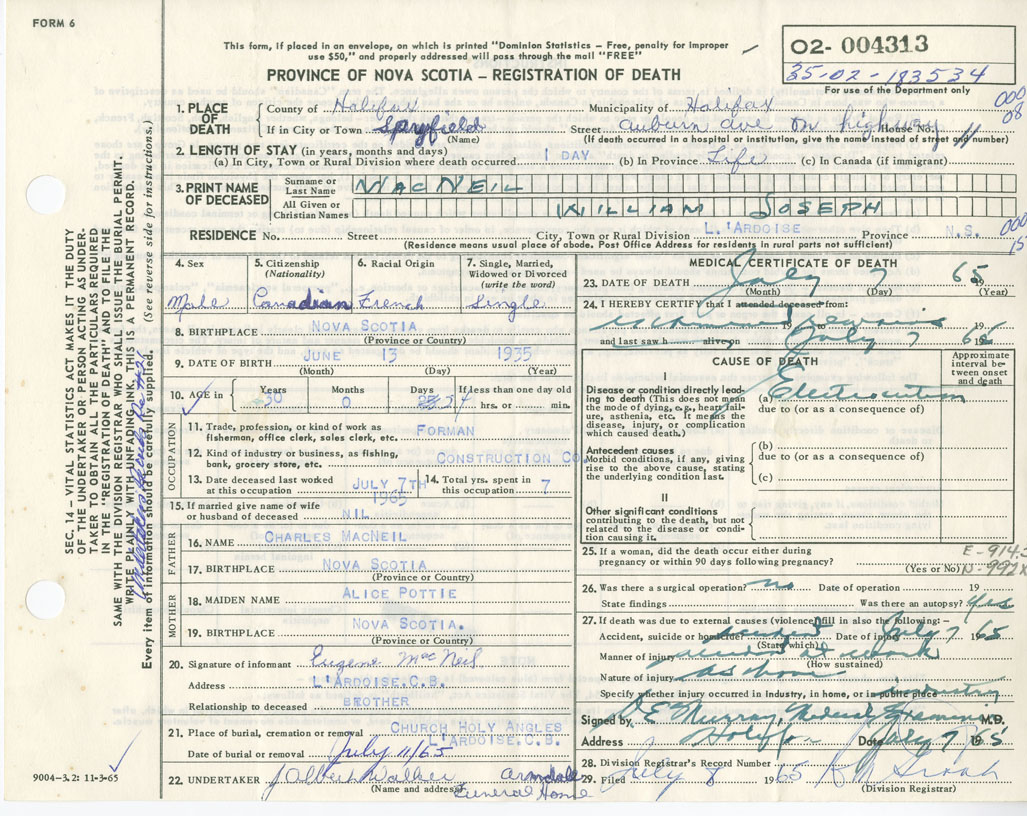 FORM 6
This form, if placed in an envelope, on which is printed "Dominion Statistics – Free, penalty for improper
use $50," and properly addressed will pass through the mail "FREE"
PROVINCE OF NOVA SCOTIA – REGISTRATION OF DEATH
02- 004313
35-02-183534
For use of the Department only
000
08
1. PLACE OF DEATH { County of Halifax Municipality of Halifax
If in City or Town Spryfield (Name) Street Auburn ave on highway House No. 11
(If death occurred in a hospital or institution, give the name instead of street and number)
2. LENGTH OF STAY (in years, months and days)
(a) In City, Town or Rural Division where death occurred 1 DAY (b) In Province Life (c) In Canada (if immigrant)
3. PRINT NAME OF DECEASED
Surname or Last Name MACNEIL
All Given or Christian Names WILLIAM JOSEPH
RESIDENCE No. Street City, Town or Rural Division L.'ARDOISE Province N.S.
000
15
(Residence means usual place of abode. Post Office Address for residents in rural parts not sufficient)
4. Sex Male
5. Citizenship (Nationality) Canadian
6. Racial Origin French
7. Single, Married, Widowed or Divorced (write the word) Single
8. BIRTHPLACE NOVA SCOTIA
(Province or Country)
9. DATE OF BIRTH JUNE 13 1935
(Month) (Day) (Year)
10. AGE in { Years 30 Months 0 Days 24 If less than one day old hrs. or min.
OCCUPATION
11. Trade, profession, or kind of work as fisherman, office clerk, sales clerk, etc. FORMAN
12. Kind of industry or business, as fishing, bank, grocery store, etc. CONSTRUCTION CO
13. Date deceased last worked at this occupation JULY 7TH 1965
14. Total yrs. spent in this occupation 7
15. If married give name of wife or husband of deceased NIL
FATHER
16. NAME CHARLES MACNEIL
17. BIRTHPLACE NOVA SCOTIA
(Province or Country)
MOTHER
18. MAIDEN NAME ALICE POTTIE
19. BIRTHPLACE NOVA SCOTIA.
(Province or Country)
20. Signature of informant Eugene MacNeil
Address L'ARDOISE.C.B.
Relationship to deceased BROTHER
21. Place of burial, cremation or removal CHURCH HOLY ANGLES
L'ARDOISE.C.B.
Date of burial or removal July 11/65
22. UNDERTAKER J Albert Walker Armdale
(Name and address) Funeral Home
MEDICAL CERTIFICATE OF DEATH
23. DATE OF DEATH July 7 1965
(Month) (Day) (Year)
24. I HEREBY CERTIFY that I attended deceased from:
examined remains 19
and last saw h alive on July 7 1965
CAUSE OF DEATH
Approximate interval between onset and death
I
Disease or condition directly leading to death (This does not mean the mode of dying, e.g., heart failure, asthenia, etc. It means the disease, injury, or complication which caused death.)
(a) Electrocution
due to (or as a consequence of)
Antecedent causes
Morbid conditions, if any, giving rise to the above cause, stating the underlying condition last.
(b)
due to (or as a consequence of)
(c)
II
Other significant conditions contributing to the death, but not related to the disease or condition causing it.
25. If a woman, did the death occur either during pregnancy or within 90 days following pregnancy? (Yes or No)
E-914.
N-992
26. Was there a surgical operation? no Date of operation 19
State findings Was there an autopsy? Yes
27. If death was due to external causes (violence) fill in also the following:–
Accident, suicide or homicide? accident Date of injury July 7 1965
(State which)
Manner of injury accident at work
(How sustained)
Nature of injury as above
Specify whether injury occurred in Industry, in home, or in public place industry
Signed by D E Murray, Medical Examiner M.D.
Address Halifax Date July 7 1965
28. Division Registrar's Record Number
29. Filed July 8 1965
(Division Registrar)
SEC. 14 – VITAL STATISTICS ACT MAKES IT THE DUTY
OF THE UNDERTAKER OR PERSON ACTING AS UNDER-
TAKER TO OBTAIN ALL THE PARTICULARS REQUIRED
IN THE "REGISTRATION OF DEATH" AND TO FILE THE
SAME WITH THE DIVISION REGISTRAR WHO SHALL ISSUE THE BURIAL PERMIT.
WRITE PLAINLY WITH UNFADING INK, THIS IS A PERMANENT RECORD.
Every item of information should be carefully supplied. (See reverse side for instructions.)
9004-3.2: 11-3-65